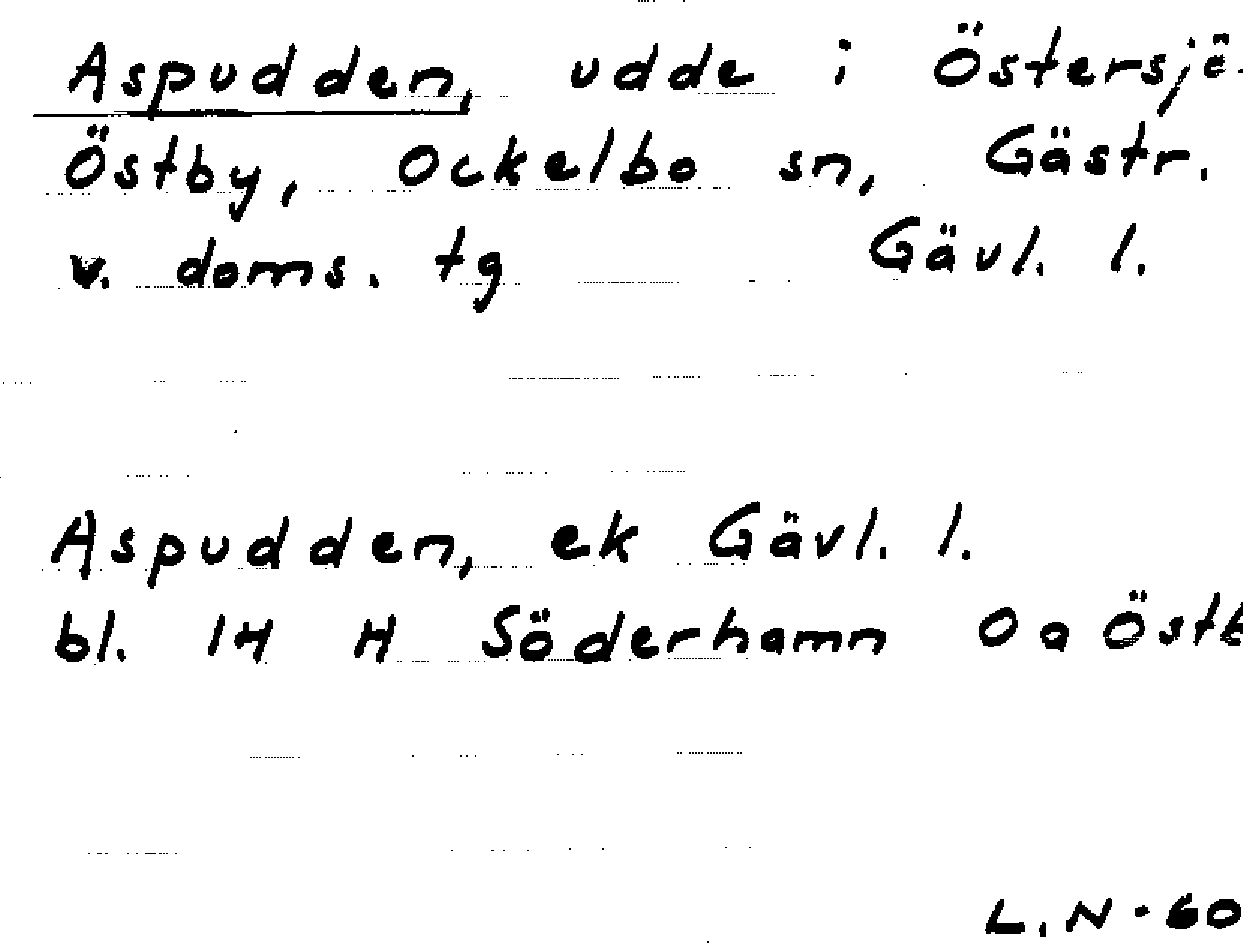 Aspudden, udde i Östersjö-
Östby, Ockelbo sn, Gästr.
v. doms. tg Gävl. l.
Aspudden, ek Gävl. l.
bl. 14 H Söderhamn 0 a Östb
L. N - 60